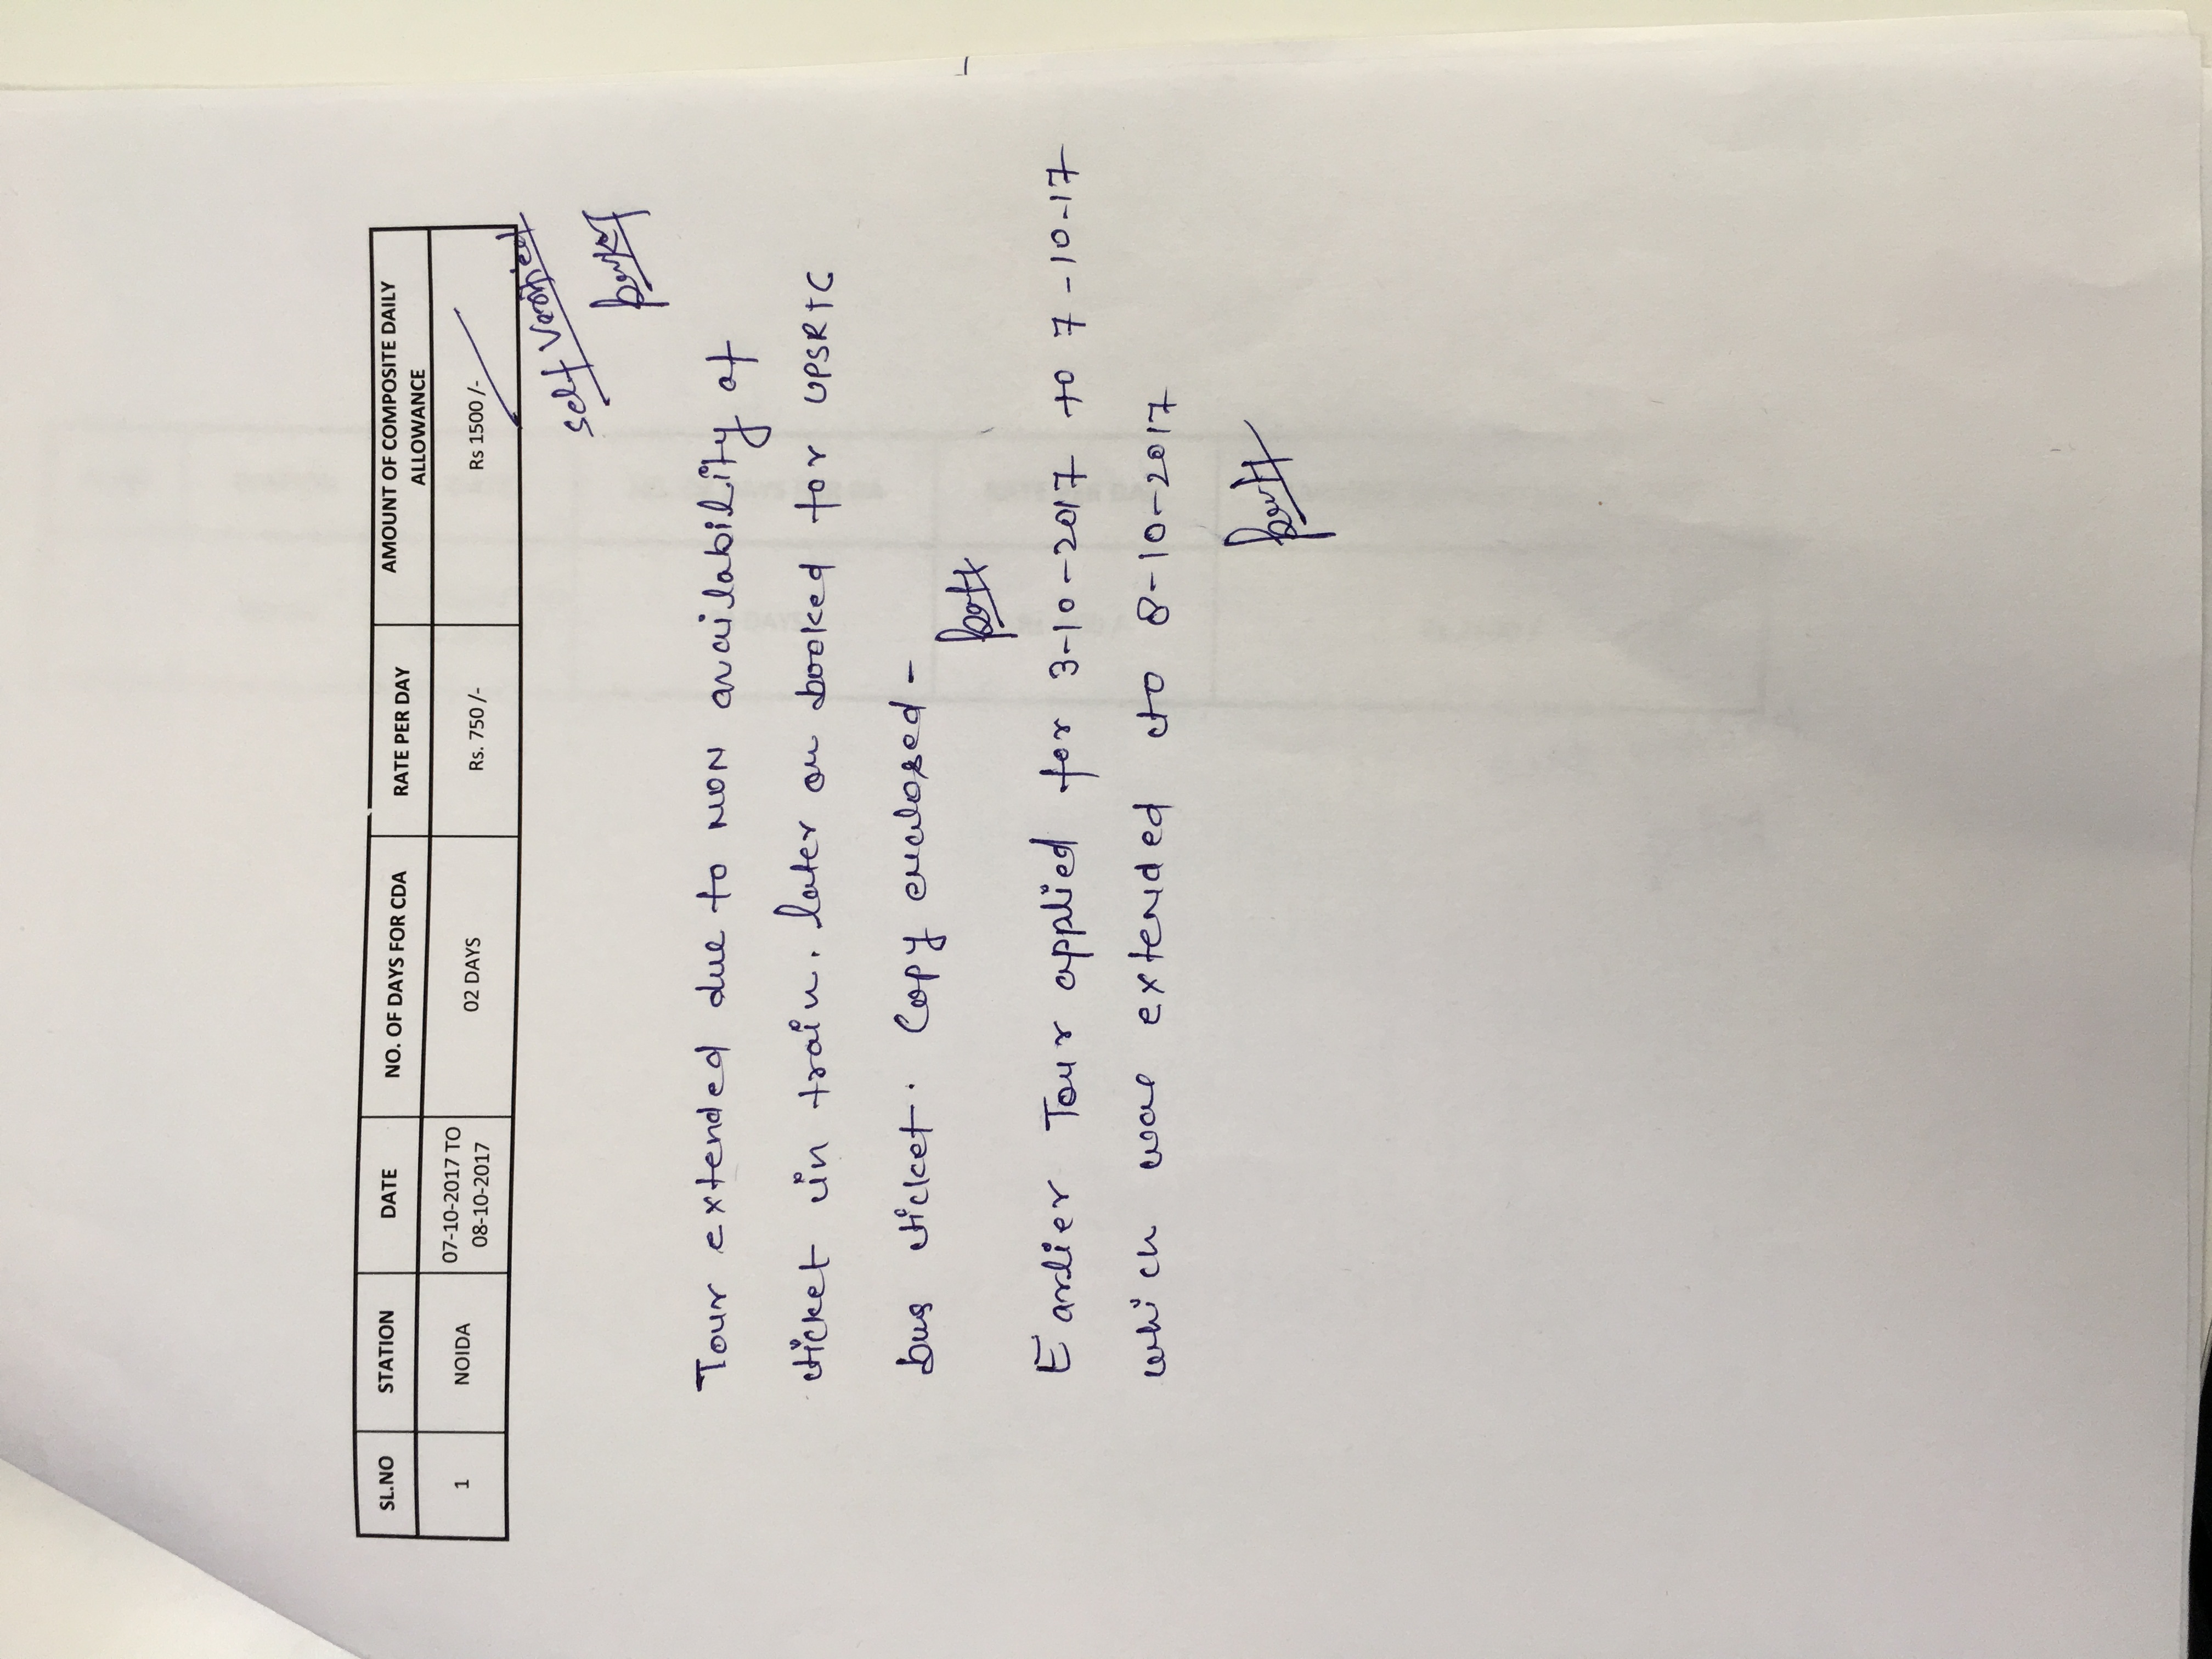 SL.NO STATION DATE NO. OF DAYS FOR CDA RATE PER DAY AMOUNT OF COMPOSITE DAILY
ALLOWANCE
1 NOIDA 07-10-2017 TO 02 DAYS Rs. 750 /- Rs 1500 /-
08-10-2017
Self Verified
Tour extended due to NON availability of
ticket in train. later on booked for UPSRTC
bus ticket. Copy enclosed -
Earlier Tour applied for 3-10-2017 to 7-10-17
which was extended to 8-10-2017